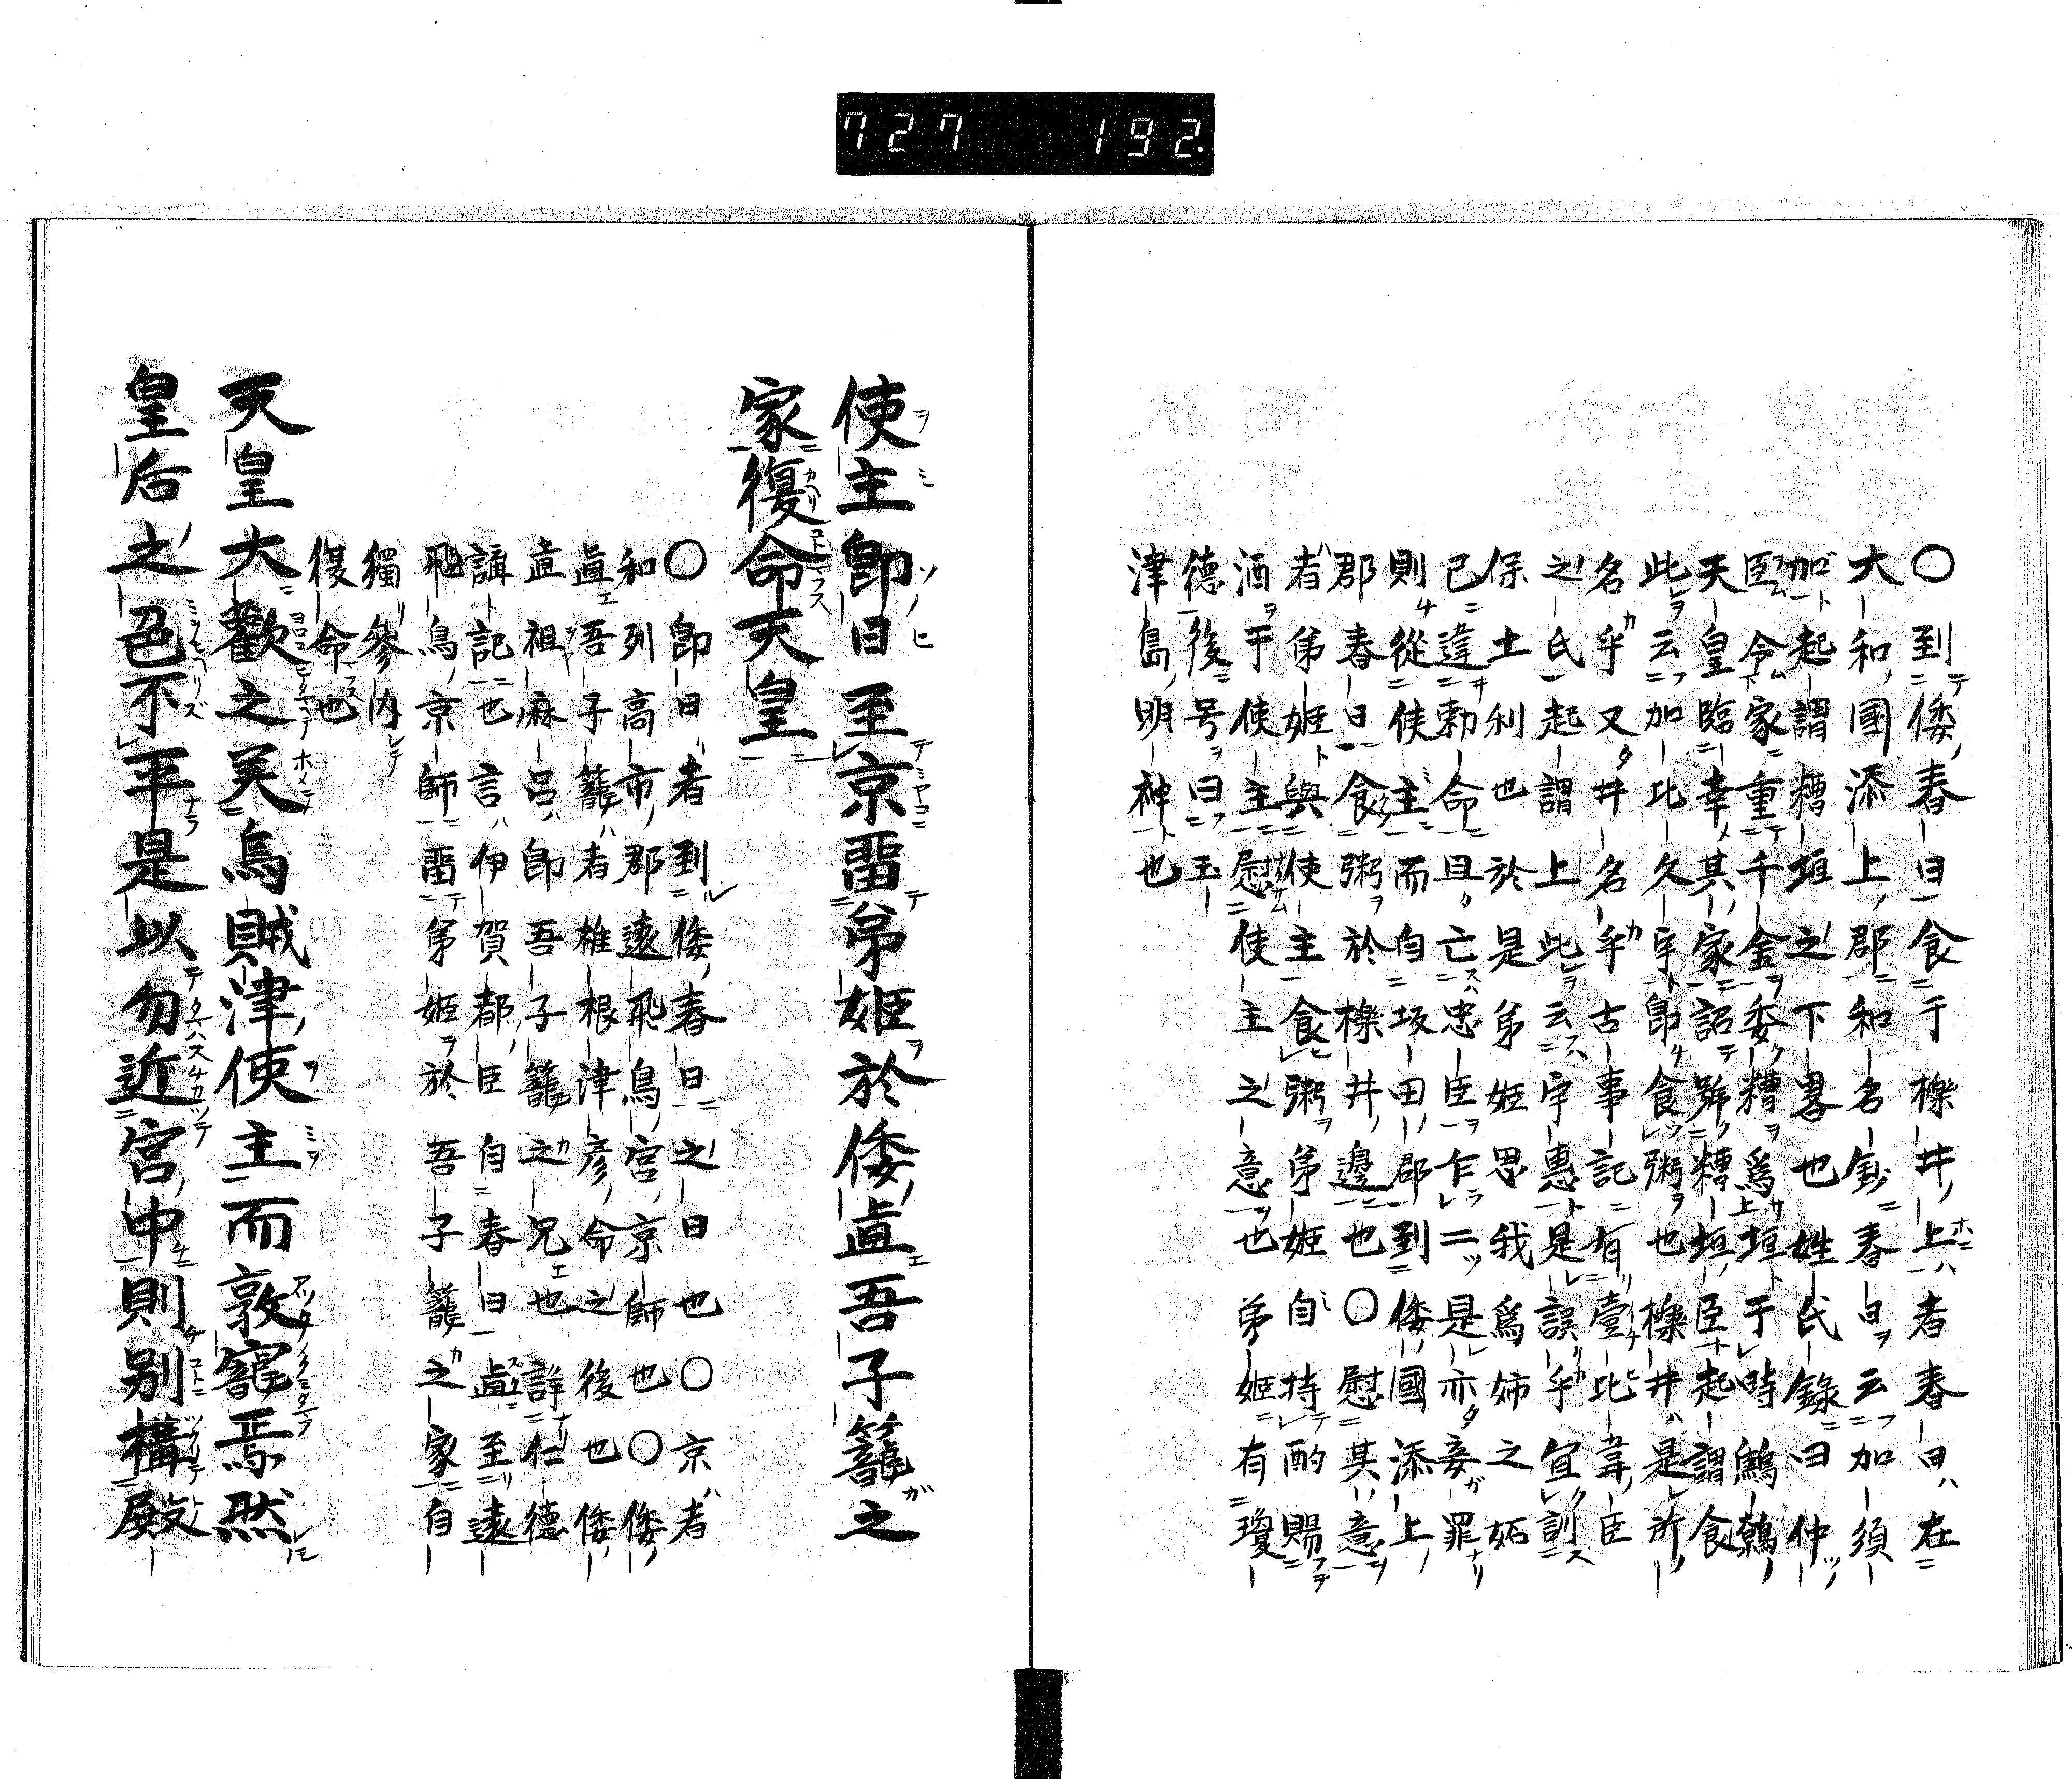 727 192.
〇到倭春日食于櫟井上者春日在
大和國添上郡和名鈔春日云加須
加起謂糟垣之下畧也姓氏錄曰仲
臣令家重千金委糟爲垣于時鷦鷯
天皇臨幸其家詔號糟垣臣起謂食
此云加比久宇卽食粥也櫟井是所
名乎又井名乎古事記有壹比韋臣
之氏起謂上此云宇惠是誤乎宜訓
保土利也於是弟姬思我爲姉之妬
已違勅命且亡忠臣乍二是亦妾罪
則從使主而自坂田郡到倭國添上
郡春日食粥於櫟井邊也〇慰其意
者弟姬與使主食粥弟姬自持酌賜
酒于使主慰使主之意也弟姬有瓊
德後号曰玉
津島明神也
使主卽日至京畱弟姬於倭直吾子籠之
家復命天皇
〇卽日者到倭春日之日也〇京者
和列高市郡遠飛鳥宮京師也〇倭
眞吾子籠者椎根津彥命之後也倭
直祖麻呂卽吾子籠之兄也詳仁德
講記也言伊賀都臣自春日眞至遠
飛鳥京師畱弟姬於吾子籠之家自
獨參內
復命也
天皇大歡之美烏賊津使主而敦寵焉然
皇后之色不平是以勿近宮中則別構殿